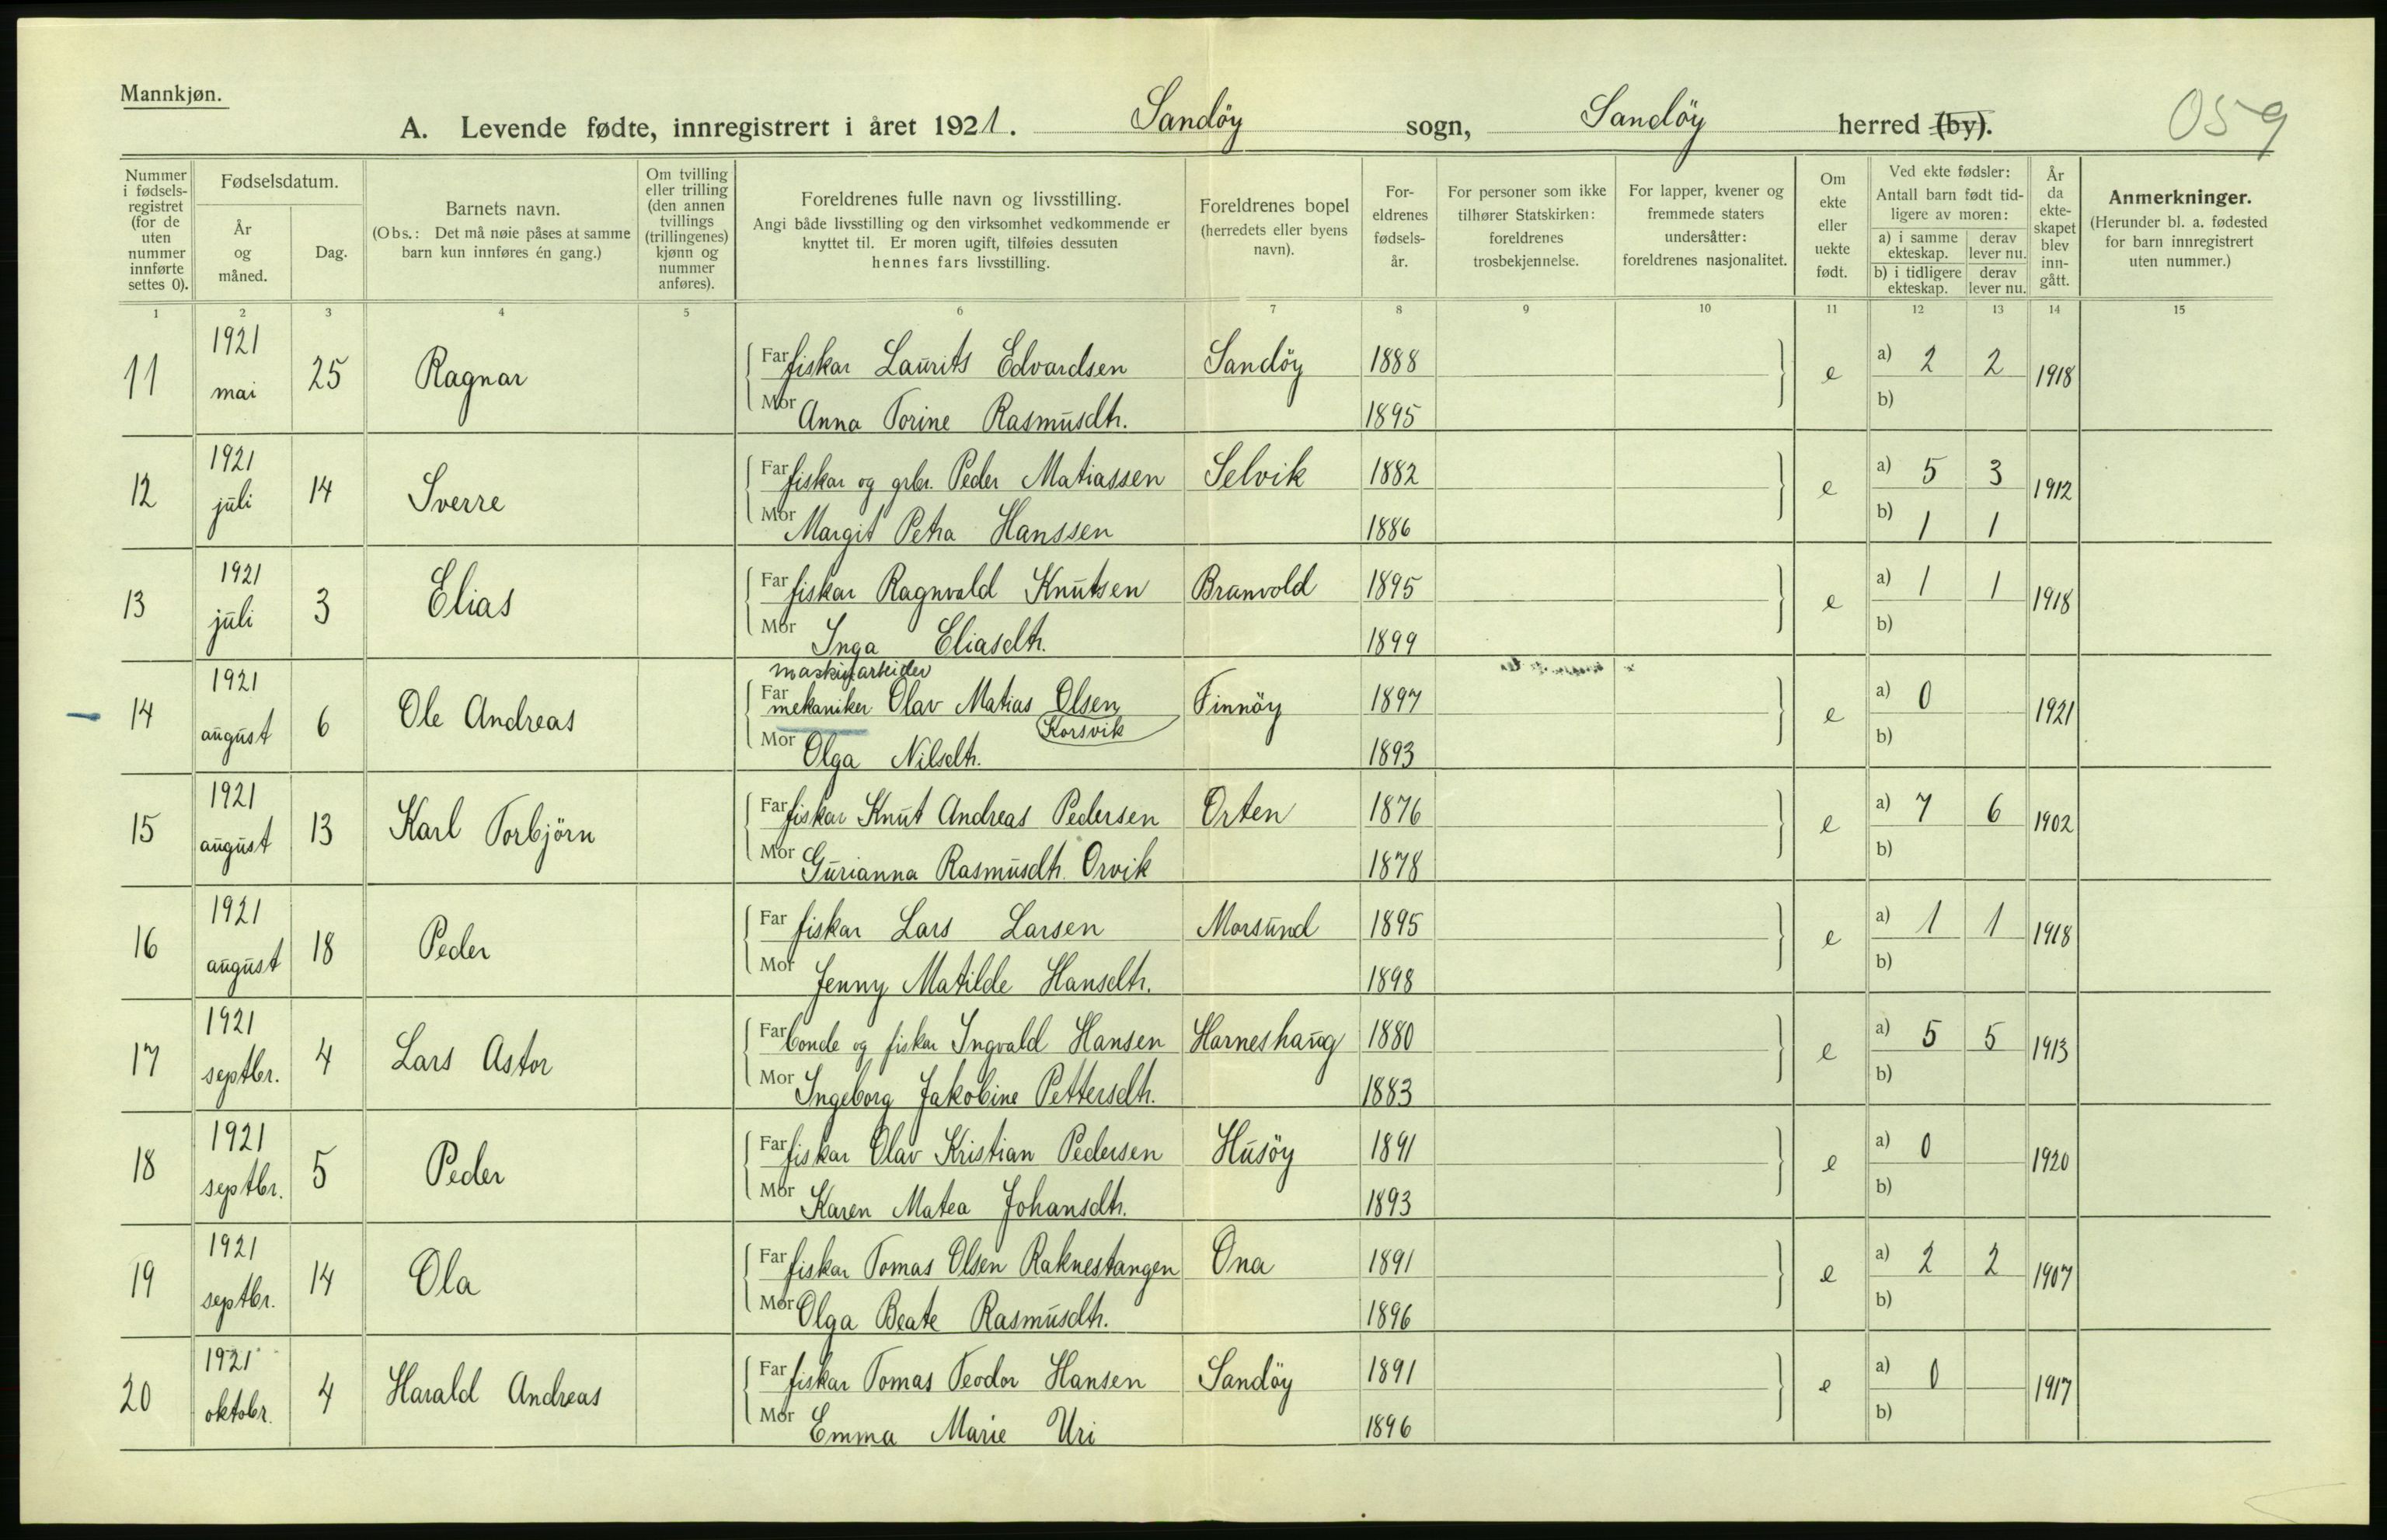 Mannkjøn.
A. Levende fødte, innregistrert i året 1921. Sandöy sogn, Sandöy herred (by).
059
Nummer i fødsels- registret (for de uten nummer innførte settes 0).
Fødselsdatum.
År og måned.
Dag.
Barnets navn.
(Obs.: Det må nøie påses at samme barn kun innføres én gang.)
Om tvilling eller trilling (den annen tvillings (trillingenes) kjønn og nummer anføres).
Foreldrenes fulle navn og livsstilling.
Angi både livsstilling og den virksomhet vedkommende er knyttet til. Er moren ugift, tilføies dessuten hennes fars livsstilling.
Foreldrenes bopel (herredets eller byens navn).
For- eldrenes fødsels- år.
For personer som ikke tilhører Statskirken: foreldrenes trosbekjennelse.
For lapper, kvener og fremmede staters undersåtter: foreldrenes nasjonalitet.
Om ekte eller uekte født.
Ved ekte fødsler: Antall barn født tid- ligere av moren:
a) i samme ekteskap. derav lever nu.
b) i tidligere ekteskap. derav lever nu.
År da ekte- skapet blev inn- gått.
Anmerkninger.
(Herunder bl. a. fødested for barn innregistrert uten nummer.)
1 2 3 4 5 6 7 8 9 10 11 12 13 14 15
11 1921 mai 25 Ragnar Far fiskar Laurits Edvardsen Sandöy 1888 e a) 2 2 1918
Mor Anna Torine Rasmusdtr. 1895 b)
12 1921 juli 14 Sverre Far fiskar og grbr. Peder Matiassen Selvik 1882 e a) 5 3 1912
Mor Margit Petra Hanssen 1886 b) 1 1
13 1921 juli 3 Elias Far fiskar Ragnvald Knutsen Brunvold 1895 e a) 1 1 1918
Mor Inga Eliasdtr. 1899 b)
maskinarbeider
14 1921 august 6 Ole Andreas Far mekaniker Olav Matias Olsen Finnöy 1897 e a) 0 1921
Korsvik
Mor Olga Nilsdtr. 1893 b)
15 1921 august 13 Karl Torbjörn Far fiskar Knut Andreas Pedersen Orten 1876 e a) 7 6 1902
Mor Gurianna Rasmusdtr. Orvik 1878 b)
16 1921 august 18 Peder Far fiskar Lars Larsen Morsund 1895 e a) 1 1 1918
Mor Jenny Matilde Hansdtr. 1898 b)
17 1921 septbr. 4 Lars Astor Far bonde og fiskar Ingvald Hansen Harneshaug 1880 e a) 5 5 1913
Mor Ingeborg Jakobine Pettersdtr. 1883 b)
18 1921 septbr. 5 Peder Far fiskar Olav Kristian Pedersen Husöy 1891 e a) 0 1920
Mor Karen Matea Johansdtr. 1893 b)
19 1921 septbr. 14 Ola Far fiskar Tomas Olsen Raknestangen Ona 1891 e a) 2 2 1907
Mor Olga Beate Rasmusdtr. 1896 b)
20 1921 oktobr. 4 Harald Andreas Far fiskar Tomas Teodor Hansen Sandöy 1891 e a) 0 1917
Mor Emma Marie Uri 1896 b)